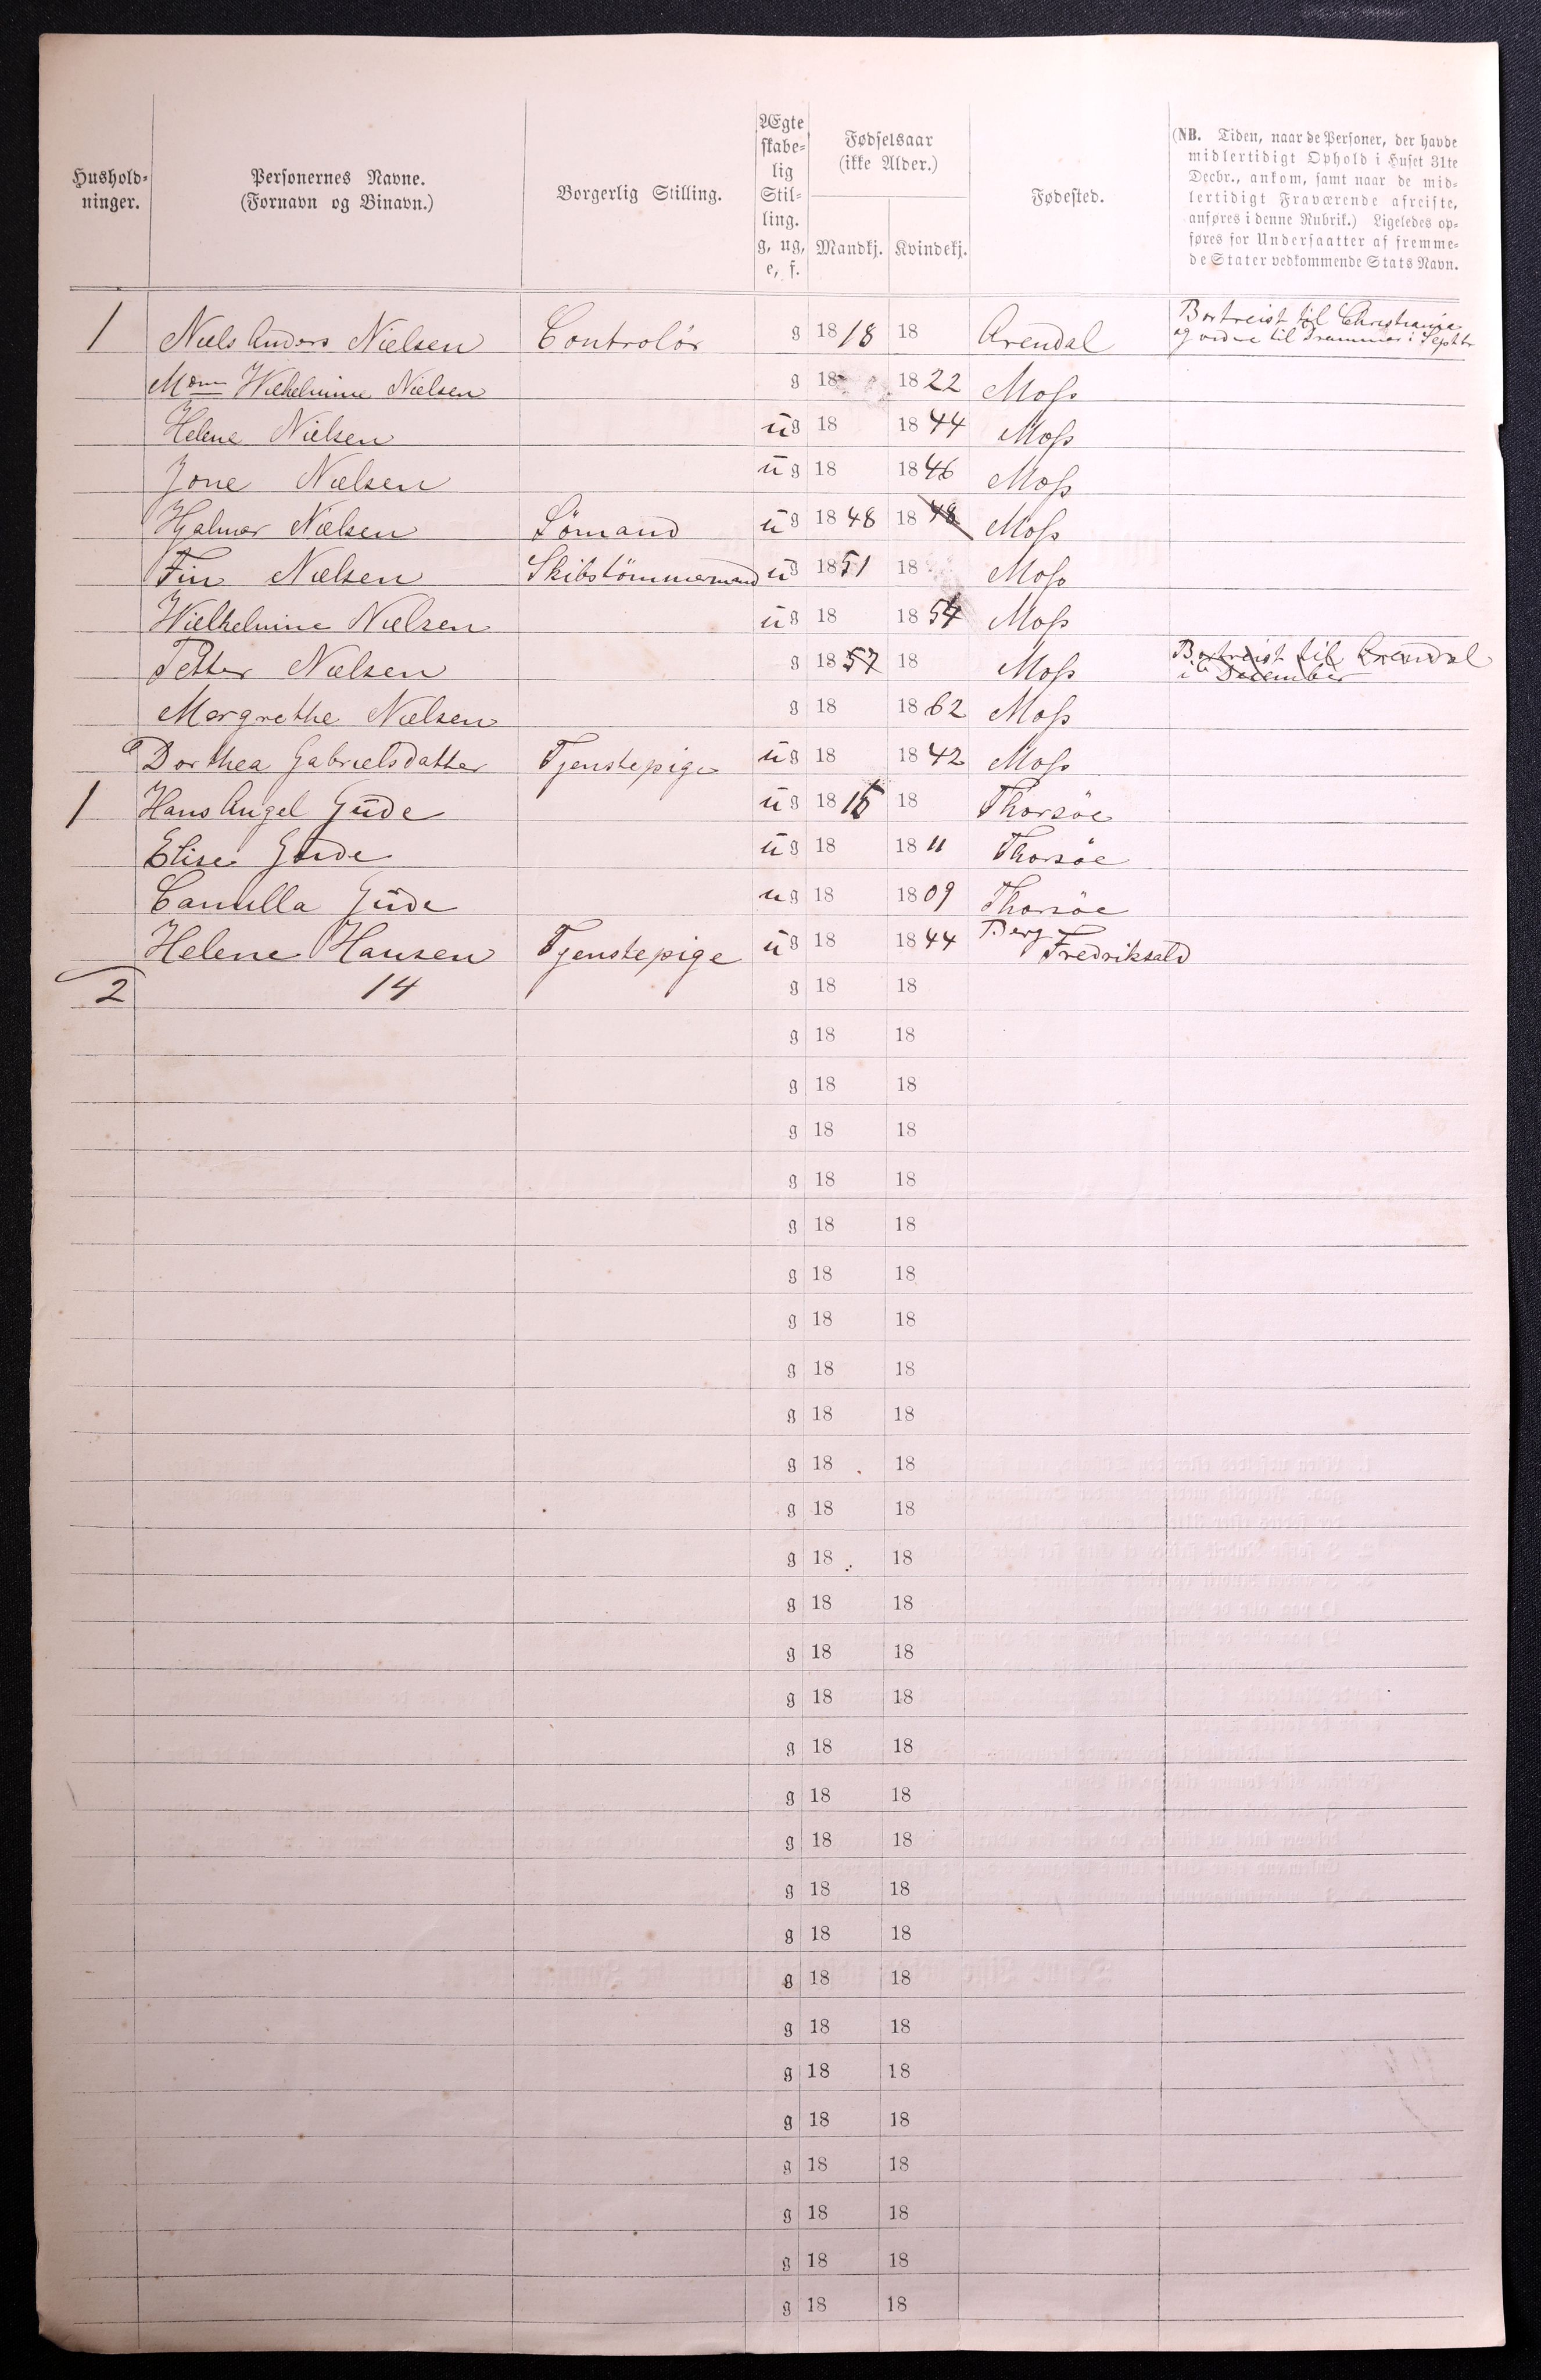 Hushold-
ninger.
Personernes Navne.
(Fornavn og Binavn.)
Borgerlig Stilling.
Ægte
skabe-
lig
Stil-
ling.
g, ug,
e, f.
Fødselsaar
(ikke Alder.)
Mandkj. Kvindekj.
Fødested.
(NB. Tiden, naar de Personer, der havde
midlertidigt Ophold i Huset 31te
Decbr., ankom, samt naar de mid-
lertidigt Fraværende afreiste,
anføres i denne Rubrik.) Ligeledes op-
føres for Undersaatter af fremme-
de Stater vedkommende Stats Navn.
1 Niels Anders Nielsen Controlör g 1818 18 Arendal Bortreist til Christiania
og videre til Drammen i Septbr
Mdm Wilhelmine Nielsen g 18 1822 Moss
Helene Nielsen ug 18 1844 Moss
Jone Nielsen ug 18 1846 Moss
Hjalmar Nielsen Sömand ug 1848 1848 Moss
Fin Nielsen Skibstömmermand ug 1851 18 Moss
Wielhelmine Nielsen ug 18 1854 Moss
Petter Nielsen g 1857 18 Moss Bortreist til Arendal
i December
Margrethe Nielsen g 18 1862 Moss
Dorthea Gabrielsdatter Tjenstepige ug 18 1842 Moss
1 Hans Angel Gude ug 1815 18 Thorsöe
Elise Gude ug 18 1811 Thorsöe
Camilla Gude ug 18 1809 Thorsöe
Helene Hansen Tjenstepige ug 18 1844 Berg
Fredriksald
2 14 g 18 18
g 18 18
g 18 18
g 18 18
g 18 18
g 18 18
g 18 18
g 18 18
g 18 18
g 18 18
g 18 18
g 18 18
g 18 18
g 18 18
g 18 18
g 18 18
g 18 18
g 18 18
g 18 18
g 18 18
g 18 18
g 18 18
g 18 18
g 18 18
g 18 18
g 18 18
g 18 18
g 18 18
g 18 18